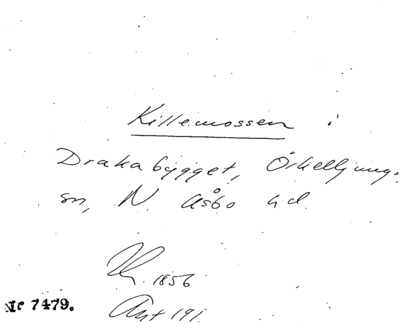 Killemossen i
Drakabygget, Örkelljunga
sn, N. Åsbo hd.
1856
Ant 191.
No 7479.